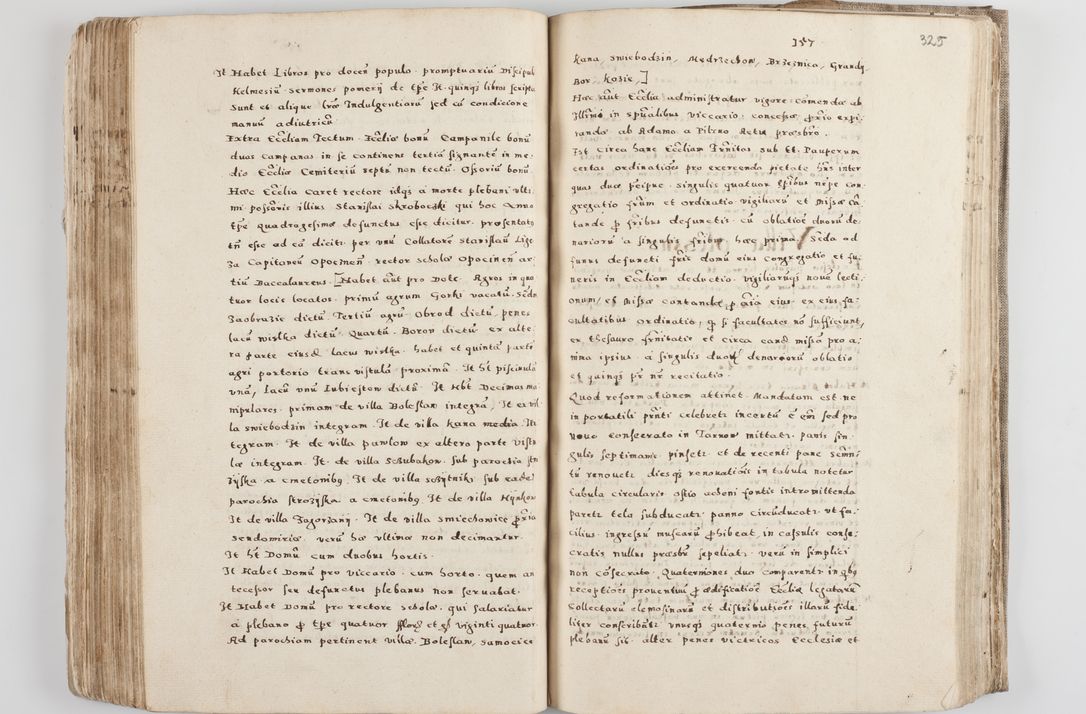 It Habet Libros pro docen populo. promptuariũ Discipuli
Kelmesiũ sermones pomerij de tpe It. quinqꝫ libros scriptos
sunt et aliqᵉ lrae Indulgentiarũ sed cũ condicione
manuũ adiutricũ
Extra Eccliam Tectum. Eccliae bonũ Campanile bonũ
duas campanas in se continens tertiã signantẽ in me-
dio Eccliae Cemiteriũ septũ non tectũ. Ossoriũ bonũ
Haec Ecclia Caret rectore idqꝫ a morte plebani ulti
mi possoris illius Stanislai Skrobocski qui hoc Anno
tpe quadragesimae defunctus esse dicitur. praesentatꝫ
tñ esse ad eã dicitr. per unũ Collatorẽ Stanislaũ Lige
za Capitaneũ Opocineñ. rector scholae Opocineñ ar-
tiũ Baccalaureus. Habet aũt pro Dote Agros in qua
tuor locis locatos. primũ agrum Gorki vacatũ. Secũdũ
Zaobruzie dictũ Tertiũ agrũ Obrod dictũ penes
lacũ wislka dictũ. Quartũ. Borow dictũ ex alte-
ra parte eiusd lacus wislka. habet et quintã partẽ
agri portorio trans vistulã proximã. It ht piscinulã
unã, lacũ unũ Iubieston dictũ. It Hbt Decimas ma
nipulares. primam de villa Boleslaw integrã, It ex vil-
la swiebodzin integram. It de villa kana media. It
tegram. It de villa pawlow ex altera parte Vistu
lae integram. It. de villa sczubakow. sub parochia stro
zijska a cmetonibꝫ. It de villa sczytniki sub eadẽ
parochia strozijska a cmetonibꝫ It de villa Hynkow
It de villa Zagorzany. It de villa smiechowice propria
sendomiriae. verũ ha ultima non decimantur.
It ht Domũ cum duobus hortis.
It Habet Domũ pro viccario. cum horto. quem an
tecessor seu defunctus plebanus non servabat.
It Habet Domũ pro rectore scholae. qui salariatur
a plebano p tpe quatuor flor et gr viginti quatuor
Ad parochiam pertinent villae. Boleslaw, samocice
157
325
Kana, swiebodzin, Mędrzechow, Brzeznica, Grandy,
Bor. Kozie,
Haec aũt Ecclia administratur vigore comendae ab
Illmo in spũalibus viccario. concessae prio expi-
randae ab Adamo a Pilzno Aetu prasbro.
Est Circa hanc Eccliam Frnitas sub tt. Pauperum
certas ordinatiões pro exercenda pietate hns inter
quas duae pcipue. singulis quatuor tpribus nẽpe con
gregatio frum et ordinatio vigiliarũ et missae cã
tandae p fribus defunctis. cũ oblatiõe duorũ de
nariorũ a singulis fribus haec prima. Seda ad
funus defuncti fris domũ eius congregatio et fu
neris in Eccliam deductio. vigiliarũqꝫ novẽ lecti
onum, et missae cantandae p aĩa eius. ex eius fa-
cultatibus ordinatio, q si facultates nõ sufficiunt,
ex thesauro frnitatis et circa eand missã pro a-
nima ipsius. a singulis duorũ denariorũ oblatio
et quinqꝫ pr nr recitatio.
Quod reformationem attinet. Mandatum est ne
in portatili prñti celebretr incertũ ẽ em sed pro
novo consecrato in Tarnow mittatr. panis sin
gulis septimanis pinsetr. et de recenti pane sacmñ
tũ renovetr diesqꝫ renovatiõis in tabula notetur
tabula circularis ostio achoni fontis intromittenda
paretr tela subducatr. panno circũducatr. ut fa-
cilius ingressũ muscarũ phibeat, in casulis conse-
cratis nullus praesbr sepeliatr. verũ in simplici
non cõsecrato. Quaterniones duo comparentr in qbꝫ
receptiões proventuũ p aedificatiõe Eccliae legatarũ
Collectarũ elemosinarũ et distributiões illarũ fide-
liter conscribãtr unusqꝫ quaternio penes futurũ
plebanũ sit alter penes vitricos Ecclesiae et